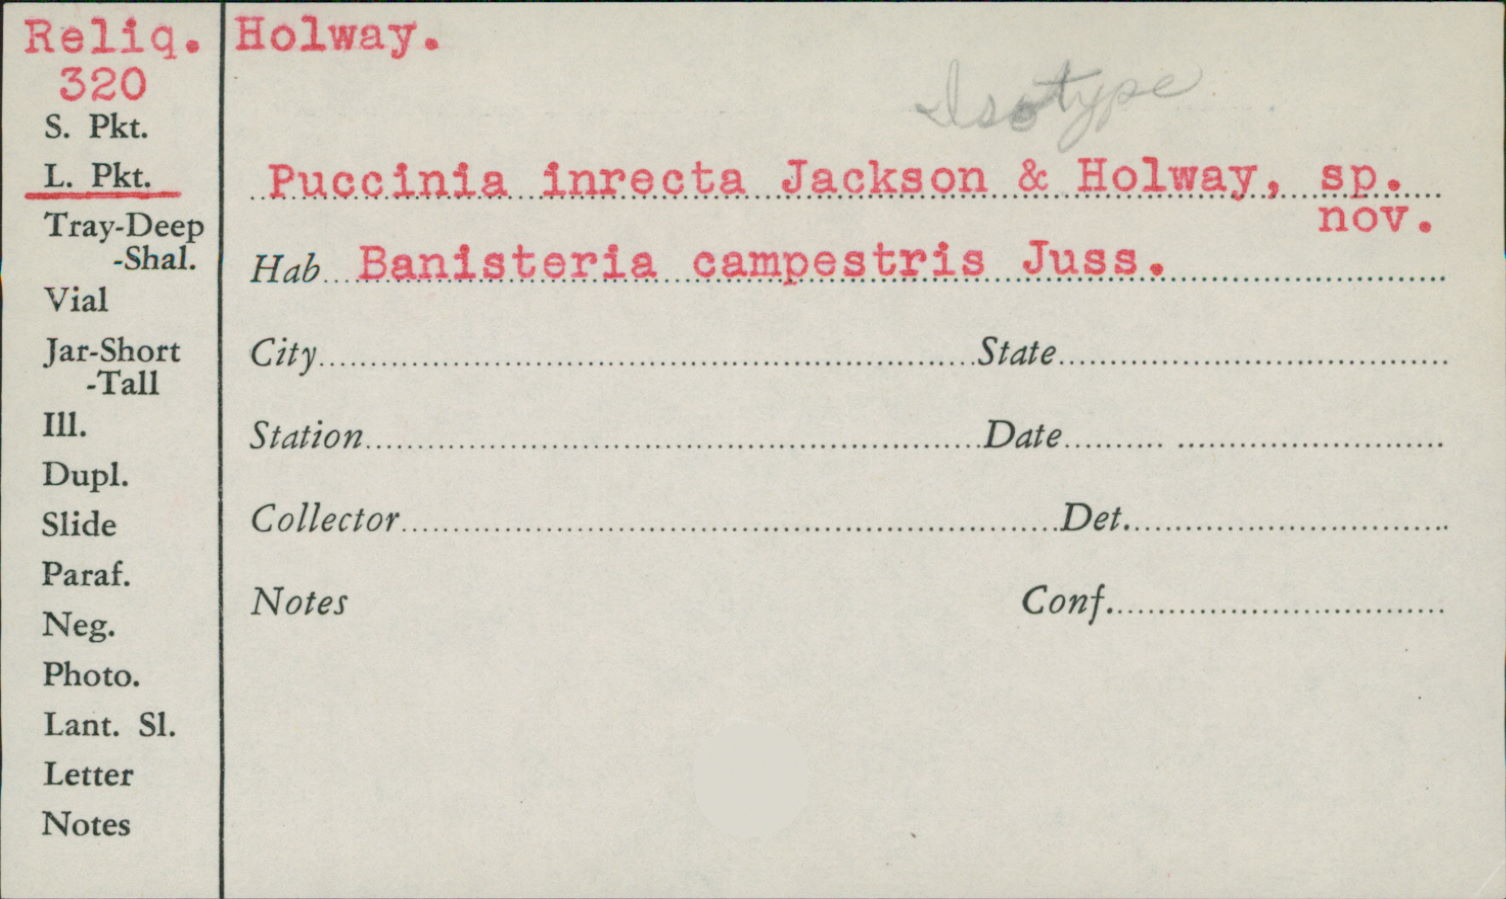 Reliq. Holway.
320
Isotype
S. Pkt.
L. Pkt.
Puccinia inrecta Jackson & Holway, sp.
nov.
Tray-Deep
-Shal.
Hab Banisteria campestris Juss.
Vial
Jar-Short
-Tall
City State
Ill.
Station Date
Dupl.
Slide
Collector Det.
Paraf.
Neg.
Notes Conf.
Photo.
Lant. Sl.
Letter
Notes